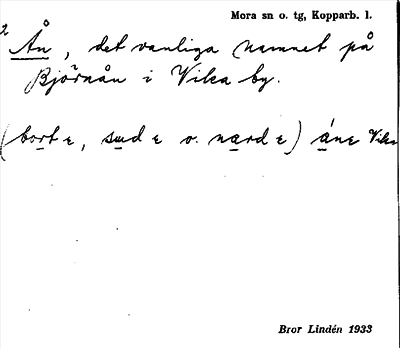 Mora sn o. tg, Kopparb. l.
2
Ån, det vanliga namnet på
Björnån i Vika by.
(bort ε, sud ε o. nard ε) ánε Vika
Bror Lindén 1933